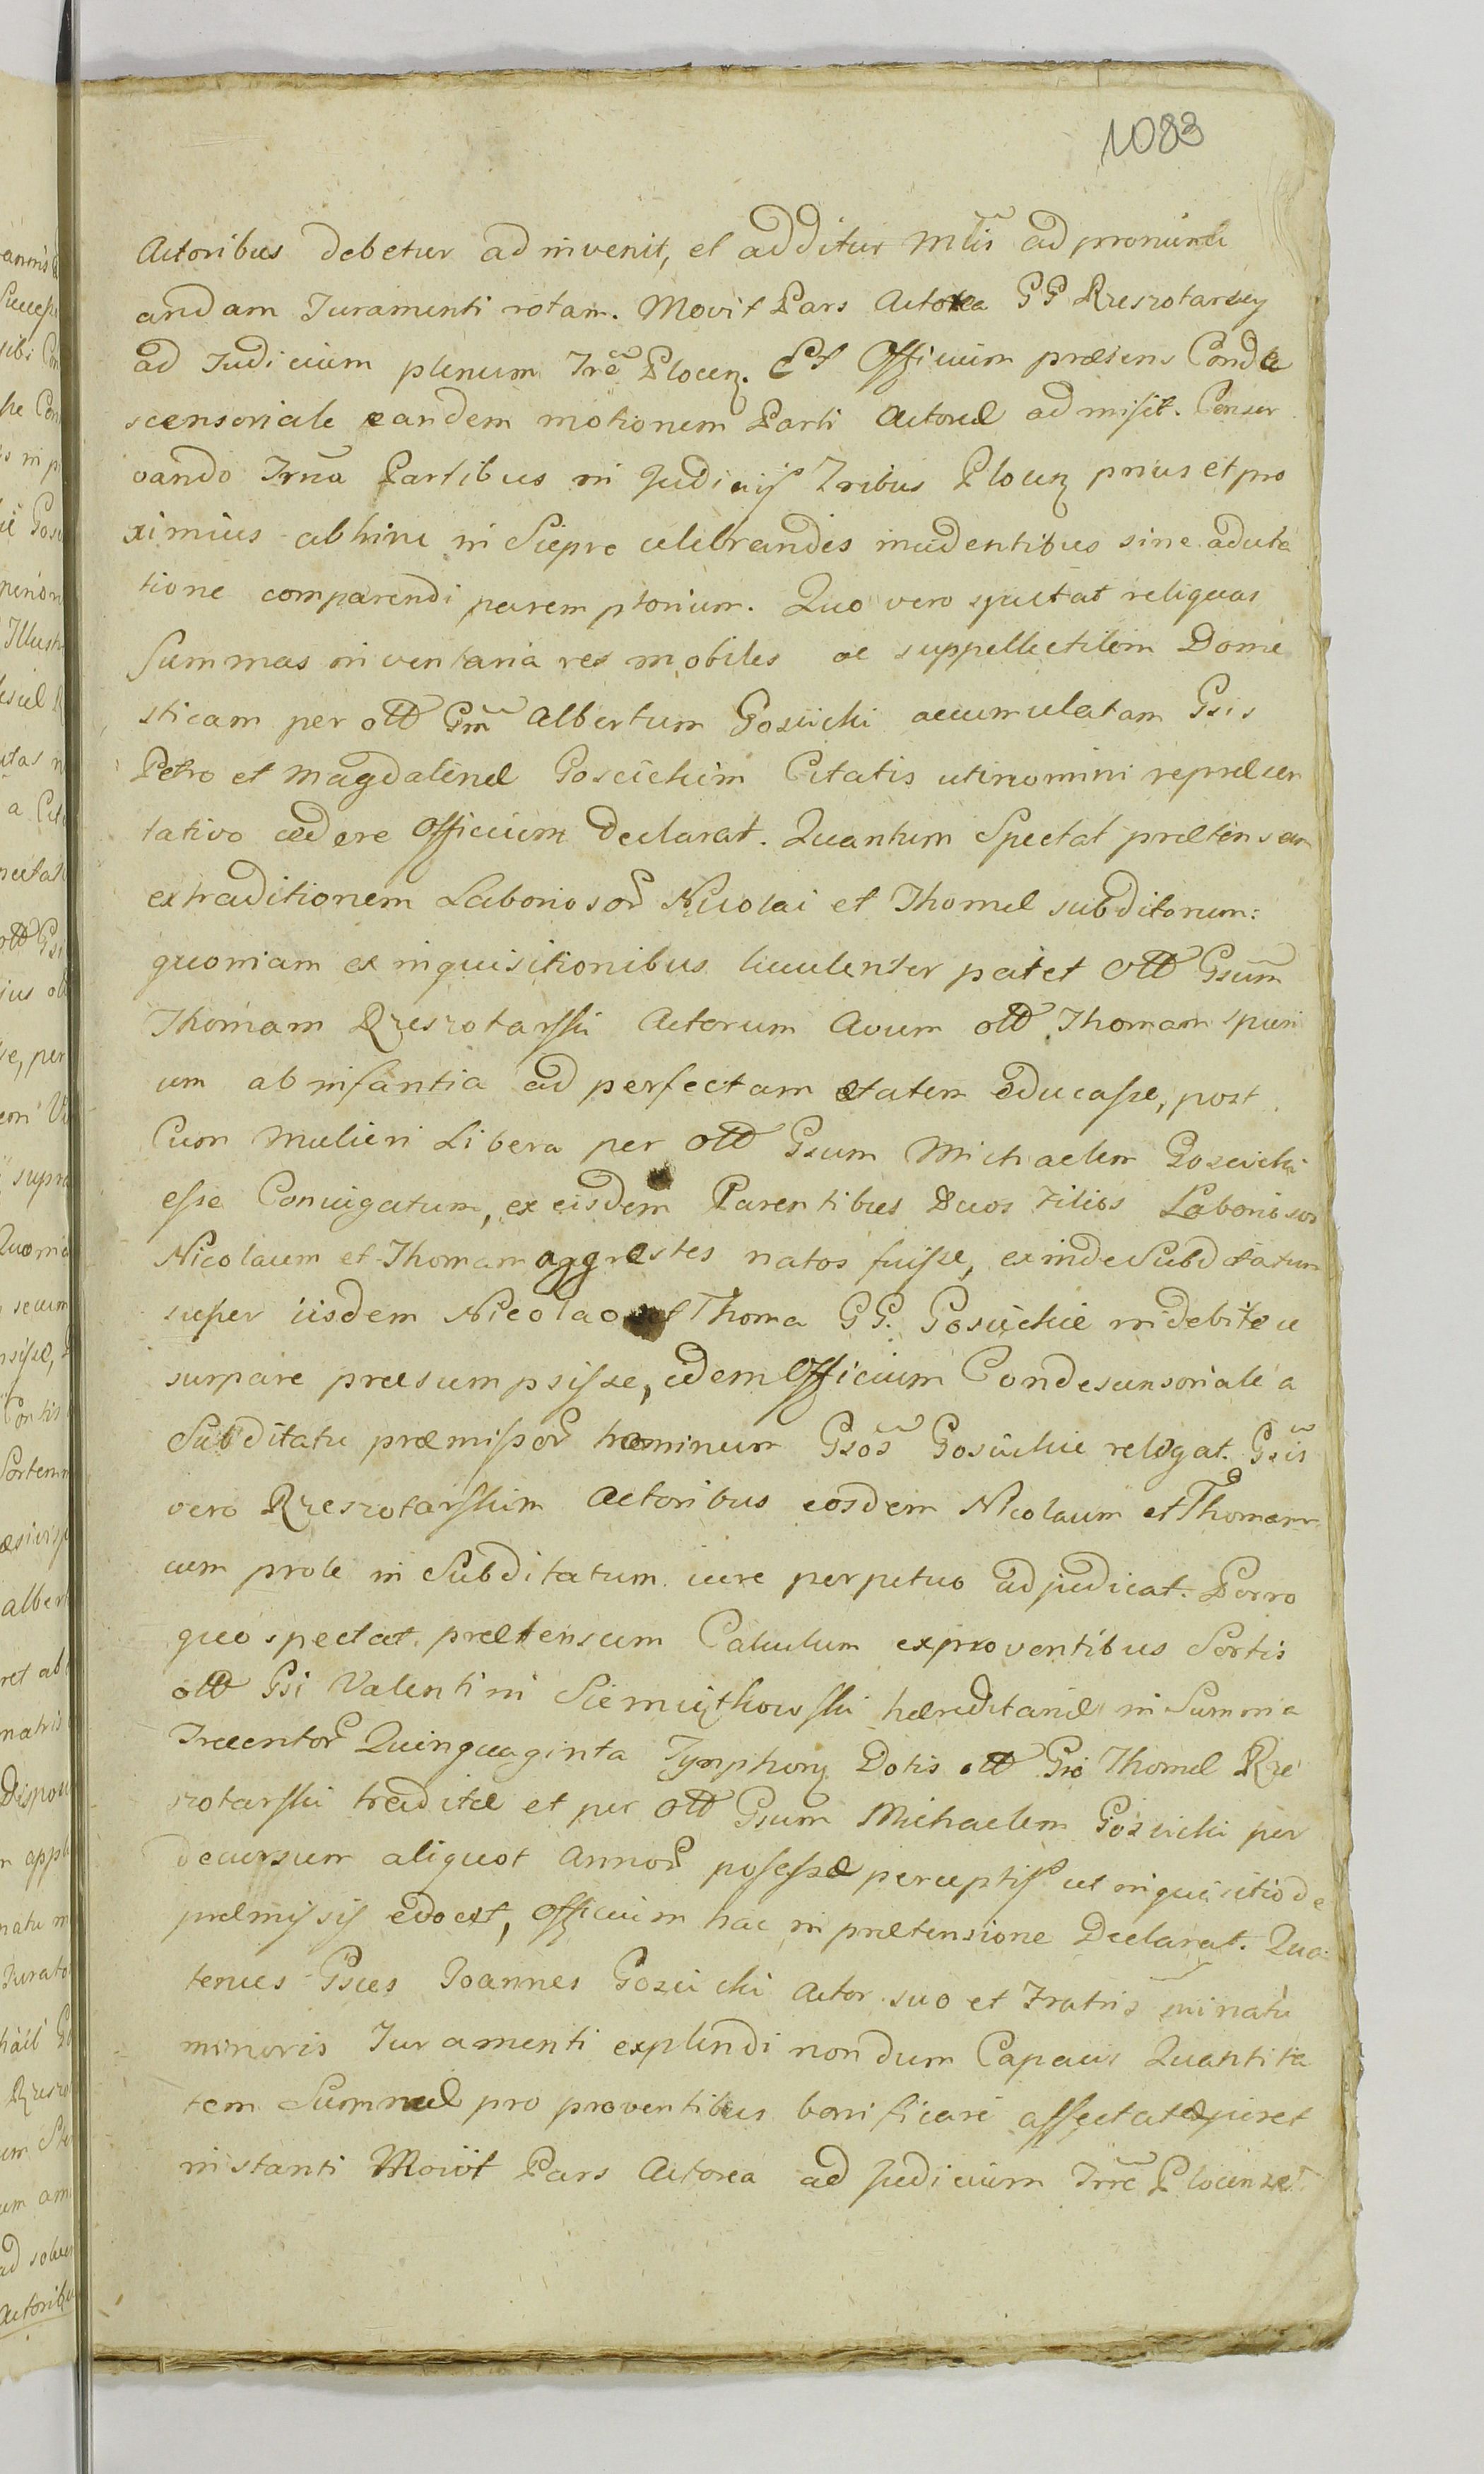 1083
Actoribus debetur adinvenit, et additur Mtis ad pronunci
andam Juramenti rotam. Movit Pars Actorea GG Rzeszotarscy
ad Judicium plenum Trē Plocen. Et Officium præsens Conde
scensoriale eandem motionem Parti Actoreæ admisit. Conser
vando Trnū Partibus in Judicijs Tribus Plocen prius et pro
ximius abhinc in Sieprc celebrandis incidentibus sine adcita
tione comparendi peremptorium. Quo vero spectat reliquas
Summas inventaria res mobiles ac suppellectilem Dome
sticam per olld Gm Albertum Goscicki accumulatam Gsis
Petro et Magdalenæ Goscickim Citatis uti nomini repræsen
tativo cedere Officium Declarat. Quantum Spectat prætensam
extraditionem Laboriosor Nicolai et Thomæ subditorum:
quoniam ex inquisitionibus luculenter patet olld Gsum
Thomam Rzeszotarski Actorum Avum olld Thomam spuri
um ab infantia ad perfectam etatem educasse, post
Cum Mulieri Libera per olld Gsum Michaelem Goscicki
esse Coniugatum, ex eisdem Parentibus Duos Filios Laboriosos
Nicolaum et Thomam aggrestes natos fuisse, exinde Subditatum
super iisdem Nicolao et Thoma GG. Goscickie indebite u
surpare præsumpsisse, idem Officium Condescensoriale a
Subditatu præmissor hominum Gsos Goscickie relegat. Gsis
vero Rzeszotarskim Actoribus eosdem Nicolaum et Thomam
cum prole in Subditatum iure perpetuo adjudicat. Porro
quo spectat prætensum Calculum ex proventibus Sortis
olld Gsi Valentini Siemiątkowski hæreditariæ in Summa
Trecentor Quinquaginta Tymphon Dotis olld Gso Thomæ Rze
szotarski traditæ et per olld Gsum Michaelem Goscicki per
decursum aliquot Annor possessæ perceptis ut inquisitio de
præmissis edocet, Officium hac in prætensione Declarat. Qua:
tenus Gsus Joannes Goscicki Actor suo et Fratris sui natu
minoris Juramenti explendi nondum Capacis Quantita
tem Summæ pro proventibus bonificari affectat
instanti Movit Pars Actorea ad Judicium Trrē Plocense